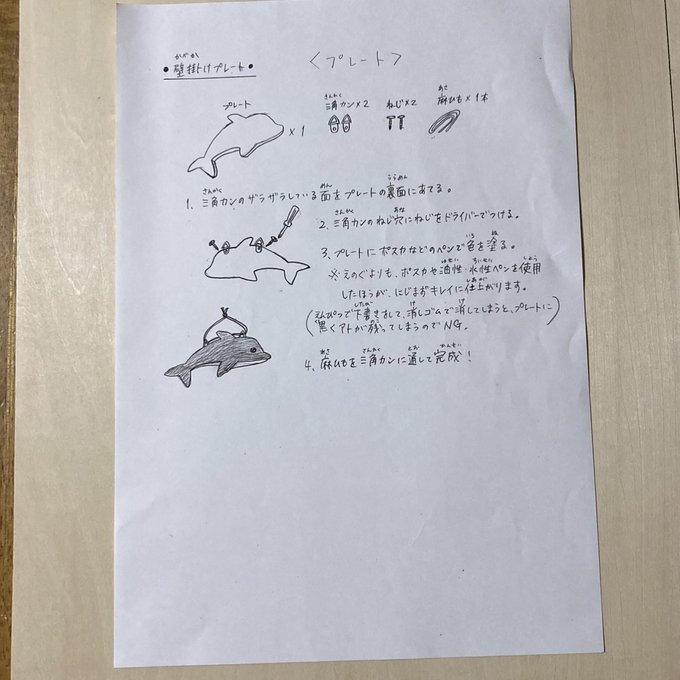 かべか
• 壁掛けプレート •
〈プレート〉
プレート
×1
さんかく
三角カン×2
ねじ×2
あさ
麻ひも×1本
さんかく めん うらめん
1. 三角カンのザラザラしている面をプレートの裏面にあてる。
さんかく あな
2. 三角カンのねじ穴にねじをドライバーでつける。
いろ ぬ
3. プレートにポスカなどのペンで色を塗る。
ゆせい すいせい しよう
※えのぐよりも、ポスカや油性・水性ペンを使用
しあ
したほうが、にじまずキレイに仕上がります。
したが け け
(えんぴつで下書きをして、消しゴムで消してしまうと、プレートに
のこ
黒くアトが残ってしまうのでNG。)
あさ さんかく とお かんせい
4. 麻ひもを三角カンに通して完成!